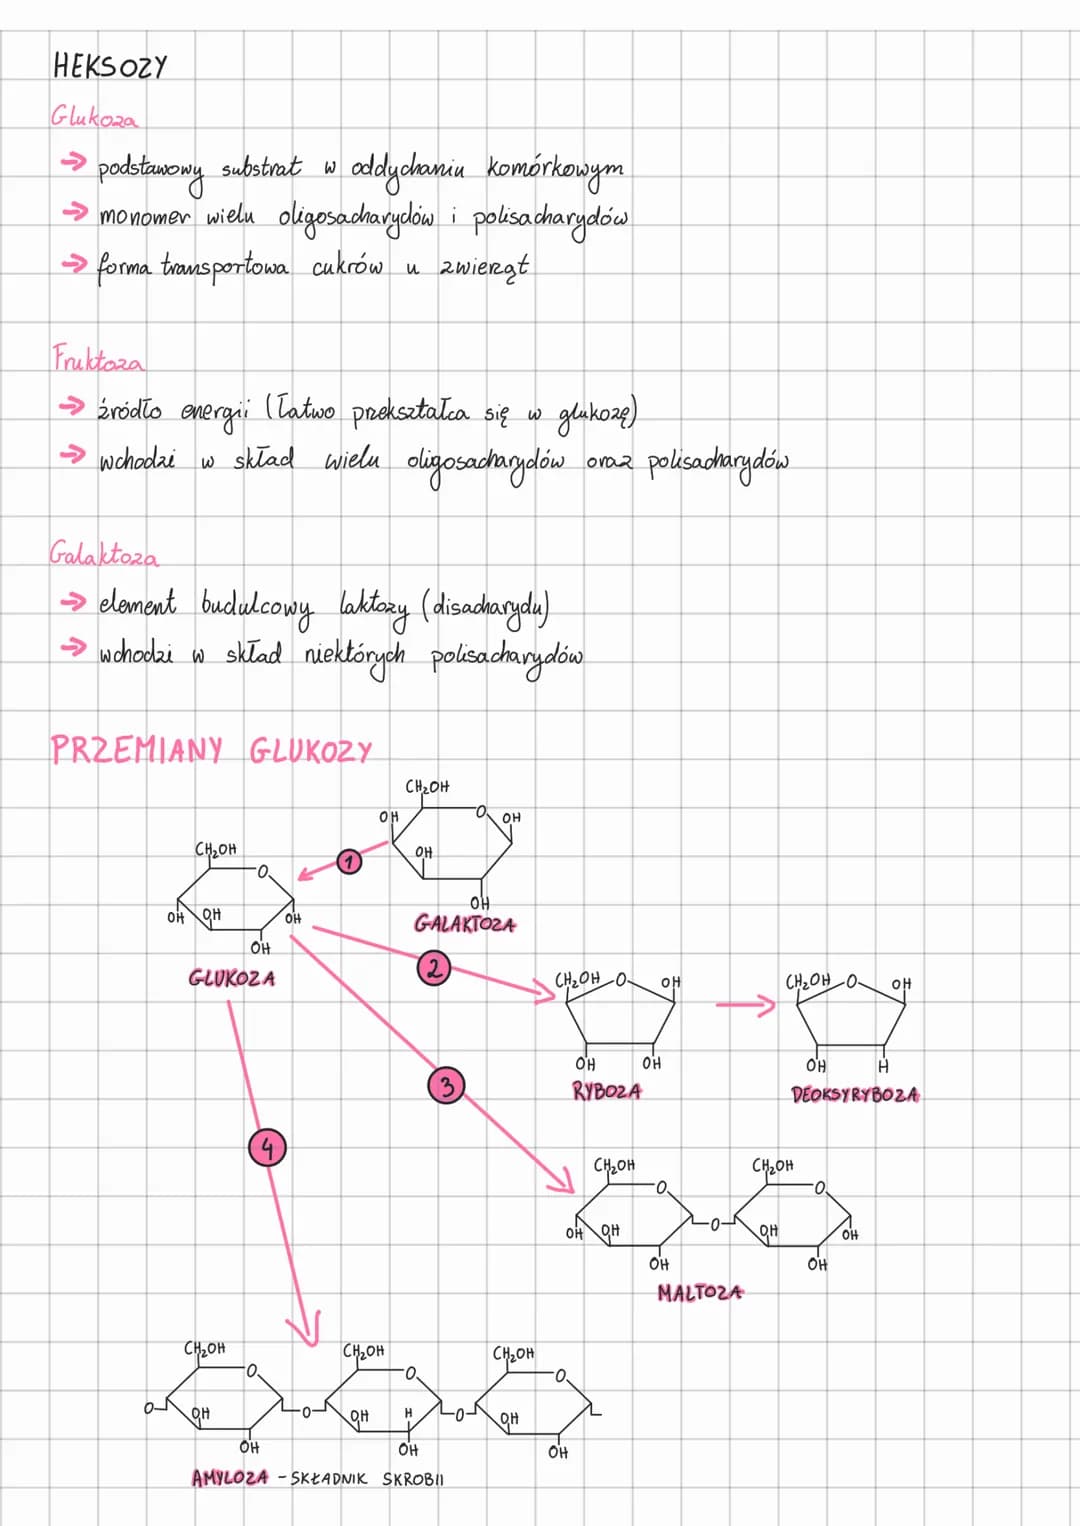 HEKSOZY
Glukoza
→ podstawowy substrat w oddychaniu komórkowym
→ monomer wielu oligosacharydów i polisacharydów
→ forma transportowa cukrów u zwierząt
Fruktoza
→ źródło energii (łatwo przekształca się w glukozę)
→ wchodzi w skład wielu oligosacharydów oraz polisacharydów
Galaktoza
→ element budulcowy laktozy (disacharydu)
→ wchodzi w skład niektórych polisacharydów
PRZEMIANY GLUKOZY
CH₂OH
OH O OH
OH
OH
GALAKTOZA
1
CH₂OH
O
OH OH OH
OH
GLUKOZA
2
CH₂OH O OH
OH OH
RYBOZA
CH₂OH O OH
OH H
DEOKSYRYBOZA
3
CH₂OH CH₂OH
O O
OH OH O OH OH
OH OH
MALTOZA
4
CH₂OH CH₂OH CH₂OH
O O O
O OH O OH H O OH
OH OH OH
AMYLOZA - SKŁADNIK SKROBII